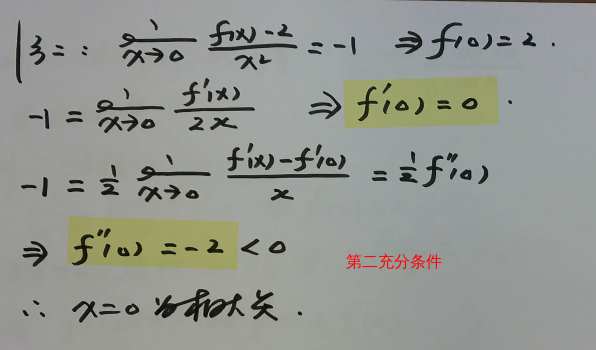 方二: lim x→0 f(x)-2 / x² = -1 ⇒ f(0) = 2.
-1 = lim x→0 f'(x) / 2x ⇒ f'(0) = 0.
-1 = 1/2 lim x→0 f'(x)-f'(0) / x = 1/2 f''(0)
⇒ f''(0) = -2 < 0
第二充分条件
∴ x=0 为极大点.